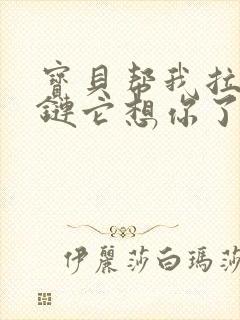 寶貝幫我拉
鏈它想你了
伊麗莎白瑪莎